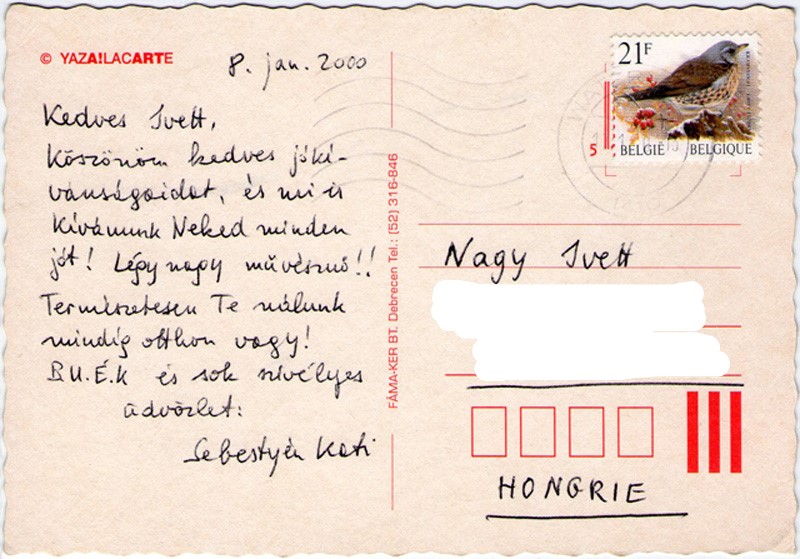 © YAZA!LACARTE
8. jan. 2000
Kedves Ivett,
Köszönöm kedves jókí-
vánságaidat, és mi is
kívánunk Neked minden
jót! Légy nagy művésznő!!
Természetesen Te nálunk
mindig otthon vagy!
B.U.É.K és sok szívélyes
üdvözlet:
Sebestyén Kati
FÁMA-KER BT. Debrecen Tel.: (52) 316-846
21F
5 BELGIË BELGIQUE
Nagy Ivett
HONGRIE